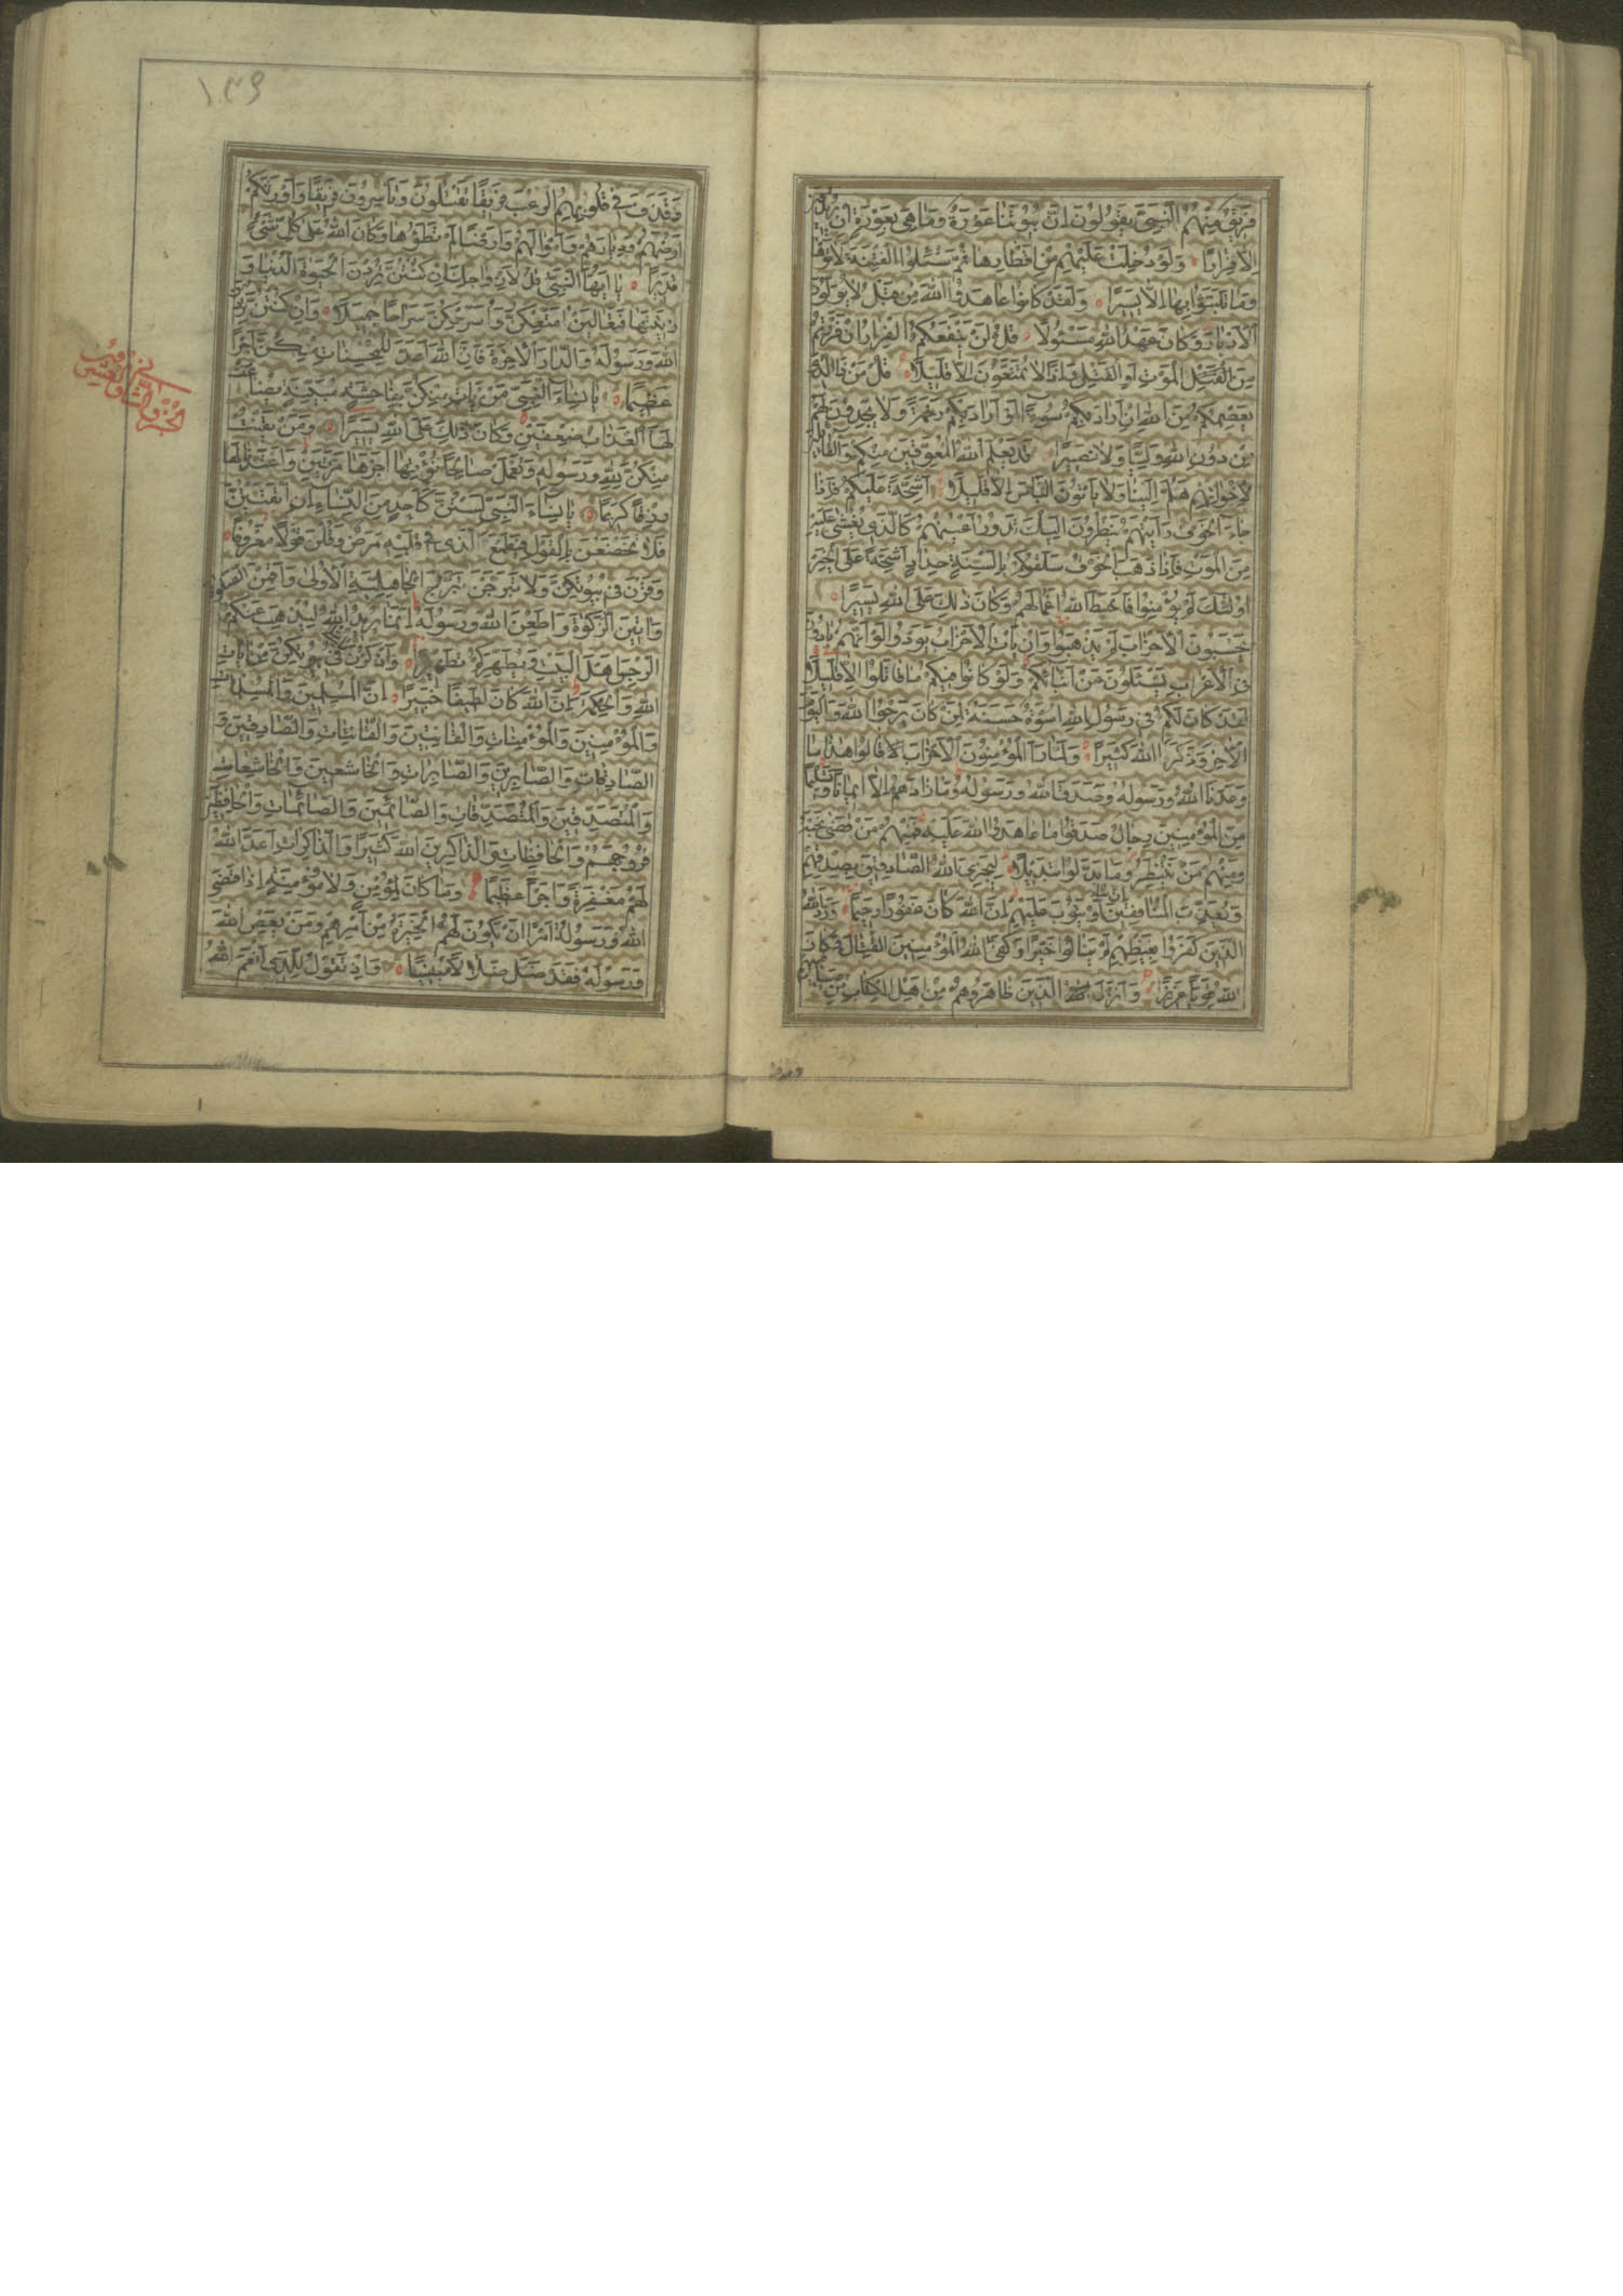 فَرِيقٌ مِنْهُمُ النَّبِيَّ يَقُولُونَ اِنَّ بُيُوتَنَا عَوْرَةٌ وَمَا هِيَ بِعَوْرَةٍ اِنْ يُرِيدُونَ
اِلَّا فِرَارًا وَلَوْ دُخِلَتْ عَلَيْهِمْ مِنْ اَقْطَارِهَا ثُمَّ سُئِلُوا الْفِتْنَةَ لَاٰتَوْهَا
وَمَا تَلَبَّثُوا بِهَا اِلَّا يَسِيرًا وَلَقَدْ كَانُوا عَاهَدُوا اللّٰهَ مِنْ قَبْلُ لَا يُوَلُّونَ
الْاَدْبَارَ وَكَانَ عَهْدُ اللّٰهِ مَسْئُولًا قُلْ لَنْ يَنْفَعَكُمُ الْفِرَارُ اِنْ فَرَرْتُمْ
مِنَ الْمَوْتِ اَوِ الْقَتْلِ وَاِذًا لَا تُمَتَّعُونَ اِلَّا قَلِيلًا قُلْ مَنْ ذَا الَّذِي
يَعْصِمُكُمْ مِنَ اللّٰهِ اِنْ اَرَادَ بِكُمْ سُوءًا اَوْ اَرَادَ بِكُمْ رَحْمَةً وَلَا يَجِدُونَ لَهُمْ
مِنْ دُونِ اللّٰهِ وَلِيًّا وَلَا نَصِيرًا قَدْ يَعْلَمُ اللّٰهُ الْمُعَوِّقِينَ مِنْكُمْ وَالْقَائِلِينَ
لِاِخْوَانِهِمْ هَلُمَّ اِلَيْنَا وَلَا يَأْتُونَ الْبَأْسَ اِلَّا قَلِيلًا اَشِحَّةً عَلَيْكُمْ فَاِذَا
جَاءَ الْخَوْفُ رَاَيْتَهُمْ يَنْظُرُونَ اِلَيْكَ تَدُورُ اَعْيُنُهُمْ كَالَّذِي يُغْشٰى عَلَيْهِ
مِنَ الْمَوْتِ فَاِذَا ذَهَبَ الْخَوْفُ سَلَقُوكُمْ بِاَلْسِنَةٍ حِدَادٍ اَشِحَّةً عَلَى الْخَيْرِ
اُولٰئِكَ لَمْ يُؤْمِنُوا فَاَحْبَطَ اللّٰهُ اَعْمَالَهُمْ وَكَانَ ذٰلِكَ عَلَى اللّٰهِ يَسِيرًا
يَحْسَبُونَ الْاَحْزَابَ لَمْ يَذْهَبُوا وَاِنْ يَأْتِ الْاَحْزَابُ يَوَدُّوا لَوْ اَنَّهُمْ بَادُونَ
فِي الْاَعْرَابِ يَسْئَلُونَ عَنْ اَنْبَائِكُمْ وَلَوْ كَانُوا فِيكُمْ مَا قَاتَلُوا اِلَّا قَلِيلًا
لَقَدْ كَانَ لَكُمْ فِي رَسُولِ اللّٰهِ اُسْوَةٌ حَسَنَةٌ لِمَنْ كَانَ يَرْجُوا اللّٰهَ وَالْيَوْمَ
الْاٰخِرَ وَذَكَرَ اللّٰهَ كَثِيرًا وَلَمَّا رَاَ الْمُؤْمِنُونَ الْاَحْزَابَ قَالُوا هٰذَا مَا
وَعَدَنَا اللّٰهُ وَرَسُولُهُ وَصَدَقَ اللّٰهُ وَرَسُولُهُ وَمَا زَادَهُمْ اِلَّا اِيمَانًا وَتَسْلِيمًا
مِنَ الْمُؤْمِنِينَ رِجَالٌ صَدَقُوا مَا عَاهَدُوا اللّٰهَ عَلَيْهِ فَمِنْهُمْ مَنْ قَضٰى نَحْبَهُ
وَمِنْهُمْ مَنْ يَنْتَظِرُ وَمَا بَدَّلُوا تَبْدِيلًا لِيَجْزِيَ اللّٰهُ الصَّادِقِينَ بِصِدْقِهِمْ
وَيُعَذِّبَ الْمُنَافِقِينَ اِنْ شَاءَ اَوْ يَتُوبَ عَلَيْهِمْ اِنَّ اللّٰهَ كَانَ غَفُورًا رَحِيمًا وَرَدَّ اللّٰهُ
الَّذِينَ كَفَرُوا بِغَيْظِهِمْ لَمْ يَنَالُوا خَيْرًا وَكَفَى اللّٰهُ الْمُؤْمِنِينَ الْقِتَالَ وَكَانَ
اللّٰهُ قَوِيًّا عَزِيزًا وَاَنْزَلَ الَّذِينَ ظَاهَرُوهُمْ مِنْ اَهْلِ الْكِتَابِ مِنْ صَيَاصِيهِمْ
وقذف
١٣٩
وَقَذَفَ فِي قُلُوبِهِمُ الرُّعْبَ فَرِيقًا تَقْتُلُونَ وَتَأْسِرُونَ فَرِيقًا وَاَوْرَثَكُمْ
اَرْضَهُمْ وَدِيَارَهُمْ وَاَمْوَالَهُمْ وَاَرْضًا لَمْ تَطَؤُهَا وَكَانَ اللّٰهُ عَلٰى كُلِّ شَيْءٍ
قَدِيرًا يَا اَيُّهَا النَّبِيُّ قُلْ لِاَزْوَاجِكَ اِنْ كُنْتُنَّ تُرِدْنَ الْحَيٰوةَ الدُّنْيَا وَ
زِينَتَهَا فَتَعَالَيْنَ اُمَتِّعْكُنَّ وَاُسَرِّحْكُنَّ سَرَاحًا جَمِيلًا وَاِنْ كُنْتُنَّ تُرِدْنَ
اللّٰهَ وَرَسُولَهُ وَالدَّارَ الْاٰخِرَةَ فَاِنَّ اللّٰهَ اَعَدَّ لِلْمُحْسِنَاتِ مِنْكُنَّ اَجْرًا
عَظِيمًا يَا نِسَاءَ النَّبِيِّ مَنْ يَأْتِ مِنْكُنَّ بِفَاحِشَةٍ مُبَيِّنَةٍ يُضَاعَفْ
لَهَا الْعَذَابُ ضِعْفَيْنِ وَكَانَ ذٰلِكَ عَلَى اللّٰهِ يَسِيرًا وَمَنْ يَقْنُتْ
مِنْكُنَّ لِلّٰهِ وَرَسُولِهِ وَتَعْمَلْ صَالِحًا نُؤْتِهَا اَجْرَهَا مَرَّتَيْنِ وَاَعْتَدْنَا لَهَا
رِزْقًا كَرِيمًا يَا نِسَاءَ النَّبِيِّ لَسْتُنَّ كَاَحَدٍ مِنَ النِّسَاءِ اِنِ اتَّقَيْتُنَّ
فَلَا تَخْضَعْنَ بِالْقَوْلِ فَيَطْمَعَ الَّذِي فِي قَلْبِهِ مَرَضٌ وَقُلْنَ قَوْلًا مَعْرُوفًا
وَقَرْنَ فِي بُيُوتِكُنَّ وَلَا تَبَرَّجْنَ تَبَرُّجَ الْجَاهِلِيَّةِ الْاُولٰى وَاَقِمْنَ الصَّلٰوةَ
وَاٰتِينَ الزَّكٰوةَ وَاَطِعْنَ اللّٰهَ وَرَسُولَهُ اِنَّمَا يُرِيدُ اللّٰهُ لِيُذْهِبَ عَنْكُمُ
الرِّجْسَ اَهْلَ الْبَيْتِ وَيُطَهِّرَكُمْ تَطْهِيرًا وَاذْكُرْنَ مَا يُتْلٰى فِي بُيُوتِكُنَّ مِنْ اٰيَاتِ
اللّٰهِ وَالْحِكْمَةِ اِنَّ اللّٰهَ كَانَ لَطِيفًا خَبِيرًا اِنَّ الْمُسْلِمِينَ وَالْمُسْلِمَاتِ
وَالْمُؤْمِنِينَ وَالْمُؤْمِنَاتِ وَالْقَانِتِينَ وَالْقَانِتَاتِ وَالصَّادِقِينَ وَ
الصَّادِقَاتِ وَالصَّابِرِينَ وَالصَّابِرَاتِ وَالْخَاشِعِينَ وَالْخَاشِعَاتِ
وَالْمُتَصَدِّقِينَ وَالْمُتَصَدِّقَاتِ وَالصَّائِمِينَ وَالصَّائِمَاتِ وَالْحَافِظِينَ
فُرُوجَهُمْ وَالْحَافِظَاتِ وَالذَّاكِرِينَ اللّٰهَ كَثِيرًا وَالذَّاكِرَاتِ اَعَدَّ اللّٰهُ
لَهُمْ مَغْفِرَةً وَاَجْرًا عَظِيمًا وَمَا كَانَ لِمُؤْمِنٍ وَلَا مُؤْمِنَةٍ اِذَا قَضَى
اللّٰهُ وَرَسُولُهُ اَمْرًا اَنْ يَكُونَ لَهُمُ الْخِيَرَةُ مِنْ اَمْرِهِمْ وَمَنْ يَعْصِ اللّٰهَ
وَرَسُولَهُ فَقَدْ ضَلَّ ضَلَالًا مُبِينًا وَاِذْ تَقُولُ لِلَّذِي اَنْعَمَ اللّٰهُ